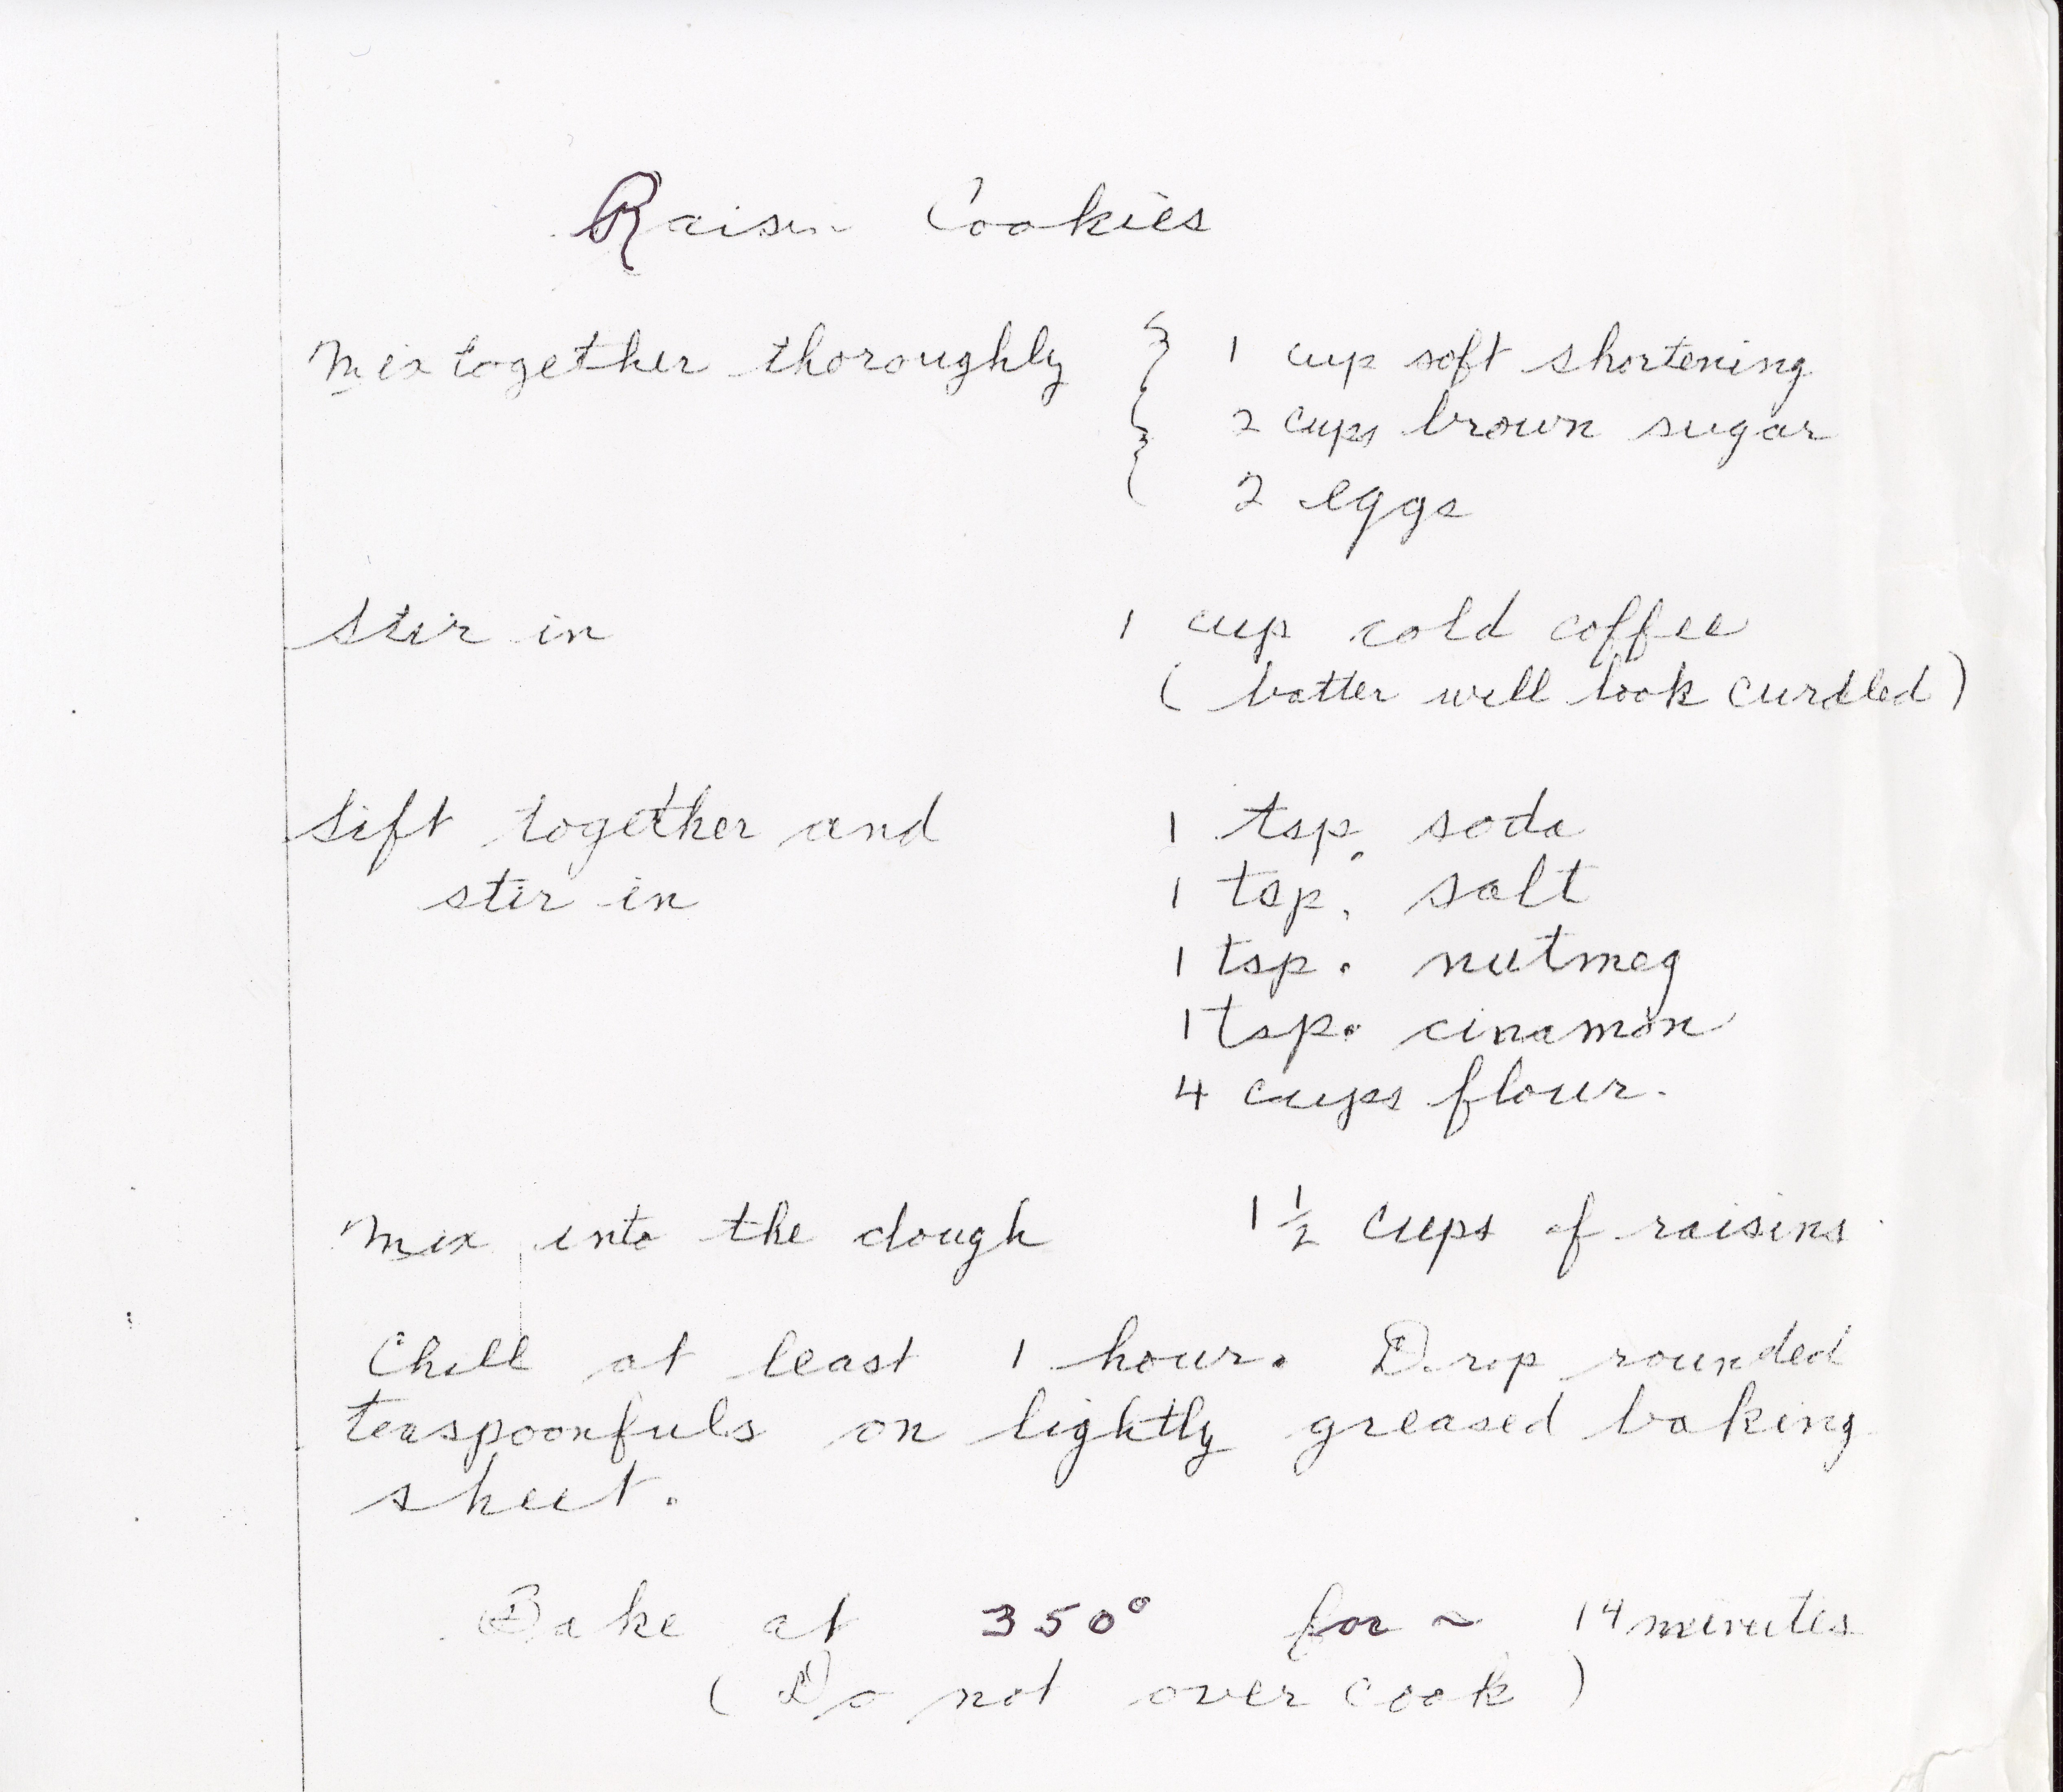 Raisin Cookies
Mix together thoroughly { 1 cup soft shortening
2 cups brown sugar
2 eggs
Stir in 1 cup cold coffee
(batter will look curdled)
Sift together and 1 tsp. soda
stir in 1 tsp. salt
1 tsp. nutmeg
1 tsp. cinamon
4 cups flour.
Mix into the dough 1 1/2 cups of raisins
Chill at least 1 hour. Drop rounded
teaspoonfuls on lightly greased baking
sheet.
Bake at 350° for ~ 14 minutes
(Do not over cook)